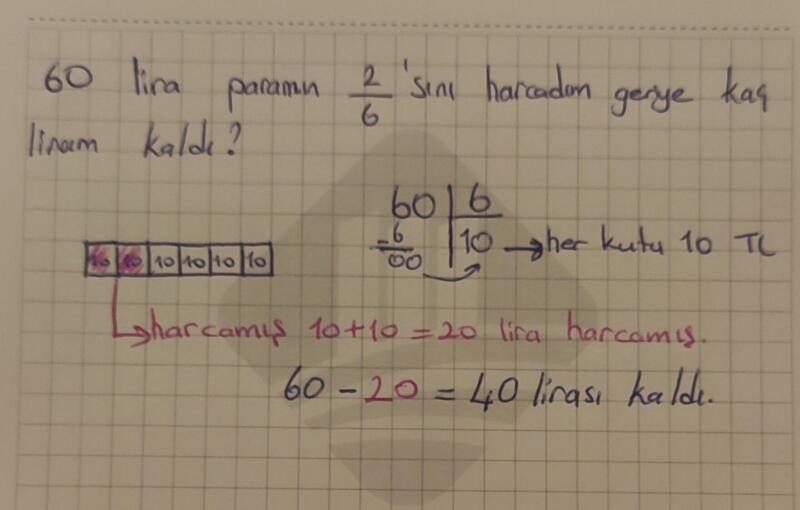 60 lira paramın 2/6 'sını harcadım geriye kaç
liram kaldı?
60 | 6
-6 | 10 → her kutu 10 TL
00
10 10 10 10 10 10
→ harcamış 10+10=20 lira harcamış.
60 - 20 = 40 lirası kaldı.